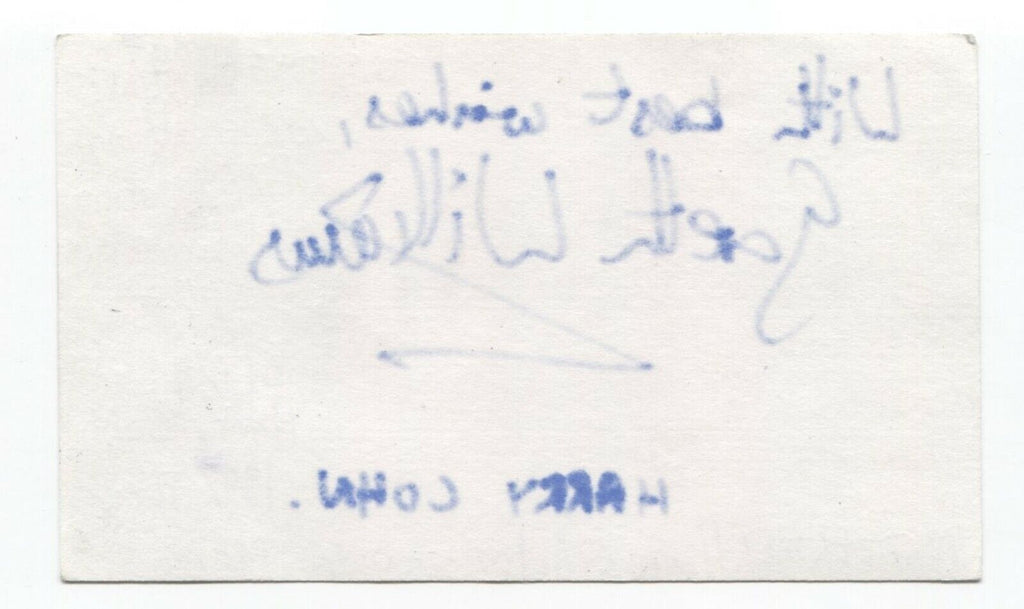 With best wishes,
Gareth Williams
HARRY COHN.